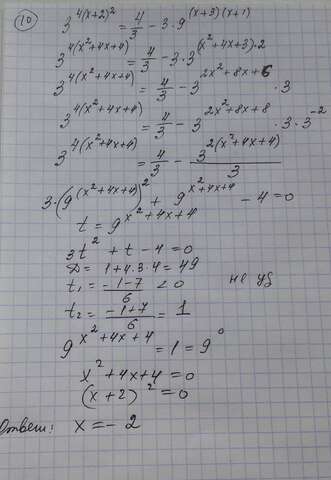 10
3^{4(x+2)^2} = 4/3 - 3·9^{(x+3)(x+1)}
3^{4(x^2+4x+4)} = 4/3 - 3·3^{(x^2+4x+3)·2}
3^{4(x^2+4x+4)} = 4/3 - 3^{2x^2+8x+6}·3
3^{4(x^2+4x+4)} = 4/3 - 3^{2x^2+8x+8}·3·3^{-2}
3^{4(x^2+4x+4)} = 4/3 - 3^{2(x^2+4x+4)}/3
3·(9^{(x^2+4x+4)})^2 + 9^{x^2+4x+4} - 4 = 0
t = 9^{x^2+4x+4}
3t^2 + t - 4 = 0
D = 1+4·3·4 = 49
t_1 = (-1-7)/6 < 0 не уд
t_2 = (-1+7)/6 = 1
9^{x^2+4x+4} = 1 = 9^0
x^2+4x+4 = 0
(x+2)^2 = 0
Ответ: x = -2